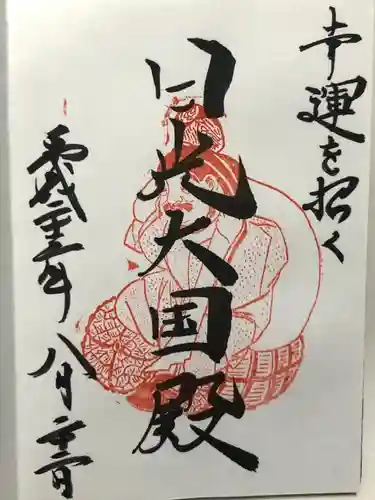 幸運を招く
日光大国殿
平成二十三年 八月二十三日